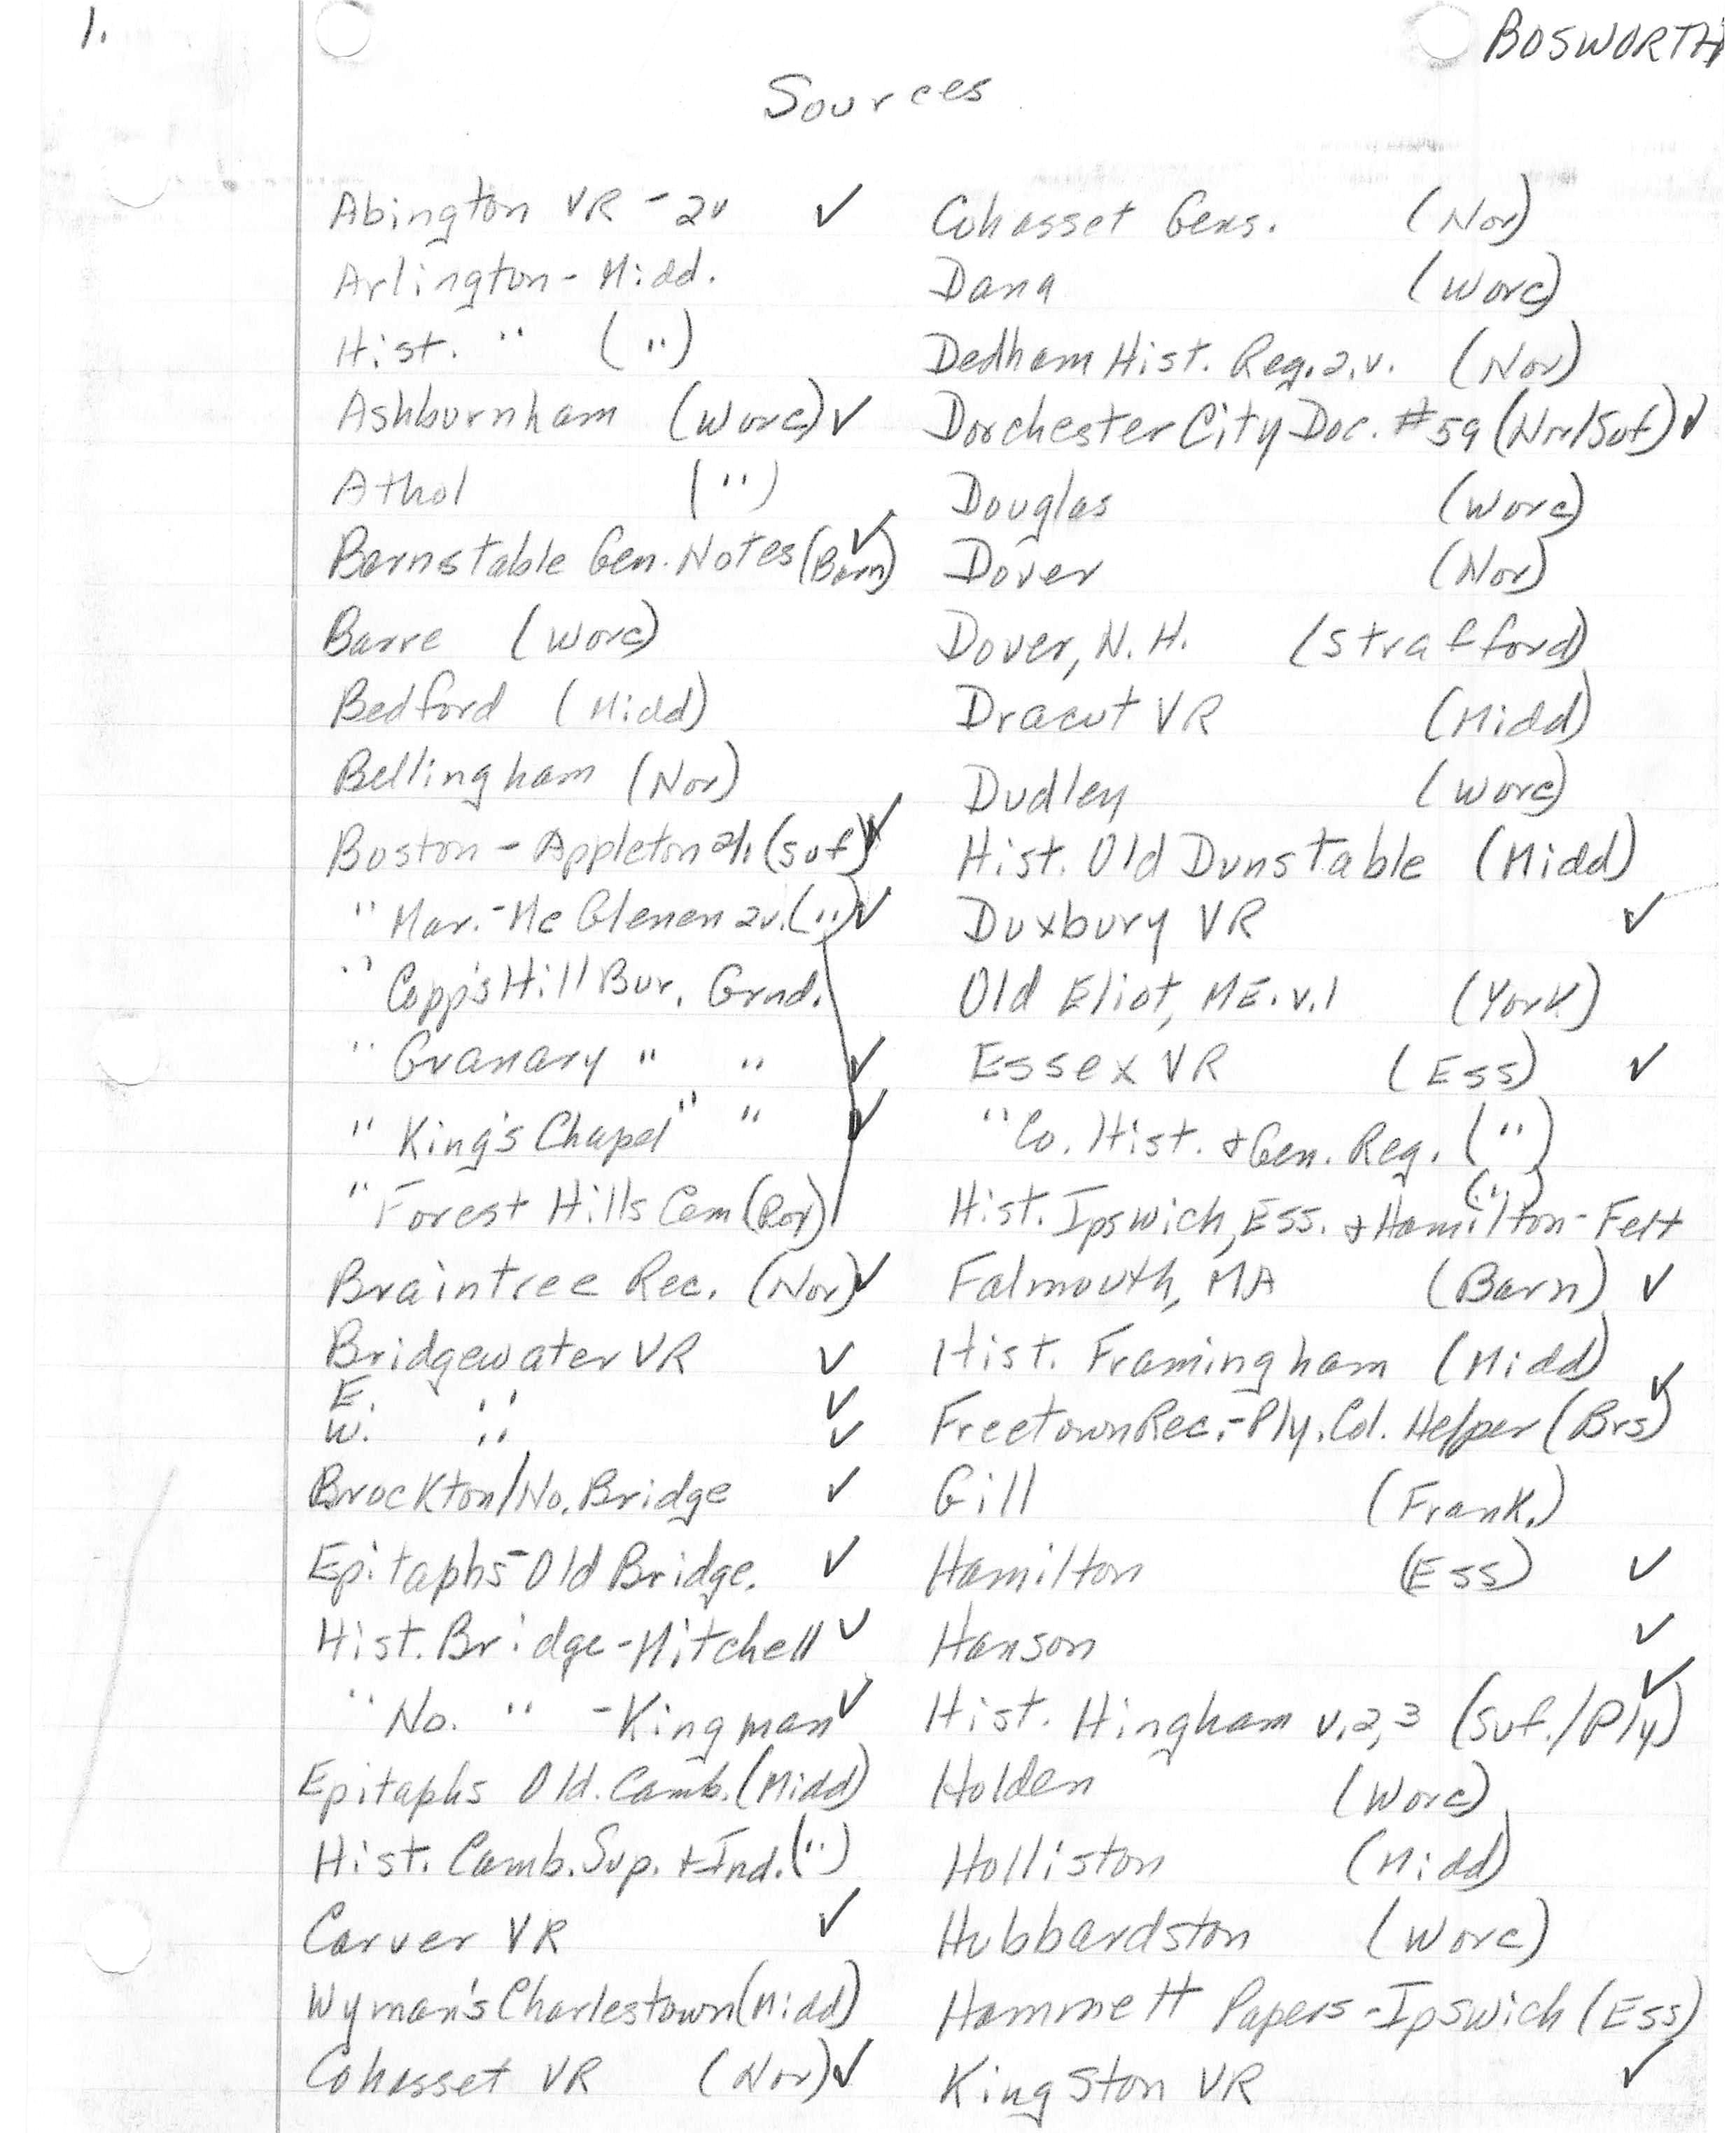 1.
BOSWORTH
Sources
Abington VR - 2v ✓
Arlington - Midd.
Hist. " (")
Ashburnham (Worc) ✓
Athol (")
Barnstable Gen. Notes (Barn) ✓
Barre (Worc)
Bedford (Midd)
Bellingham (Nor)
Boston - Appleton (Suf) ✓
" Mar. - McGlenen 2v. (") ✓
" Copp's Hill Bur. Grnd.
" Granary " " ✓
" King's Chapel " " ✓
" Forest Hills Cem
Braintree Rec. (Nor) ✓
Bridgewater VR ✓
E. " ✓
W. " ✓
Brockton/No. Bridge ✓
Epitaphs - Old Bridge. ✓
Hist. Bridge - Mitchell ✓
" No. " - Kingman ✓
Epitaphs Old. Camb. (Midd)
Hist. Camb. Sup. + Ind. (")
Carver VR ✓
Wyman's Charlestown (Midd)
Cohasset VR (Nor) ✓
Cohasset Gens. (Nor)
Dana (Worc)
Dedham Hist. Reg. 2. v. (Nor)
Dorchester City Doc. #59 (Nor/Suf) ✓
Douglas (Worc)
Dover (Nor)
Dover, N. H. (Strafford)
Dracut VR (Midd)
Dudley (Worc)
Hist. Old Dunstable (Midd)
Duxbury VR ✓
Old Eliot, ME. v. 1 (York)
Essex VR (Ess) ✓
" Co. Hist. + Gen. Reg. (")
Hist. Ipswich, Ess. + Hamilton - Felt (")
Falmouth, MA (Barn) ✓
Hist. Framingham (Midd)
Freetown Rec. - Ply. Col. Helper (Brs) ✓
Gill (Frank.)
Hamilton (Ess) ✓
Hanson ✓
Hist. Hingham v. 2, 3 (Suf./Ply) ✓
Holden (Worc)
Holliston (Midd)
Hubbardston (Worc)
Hammett Papers - Ipswich (Ess)
Kingston VR ✓